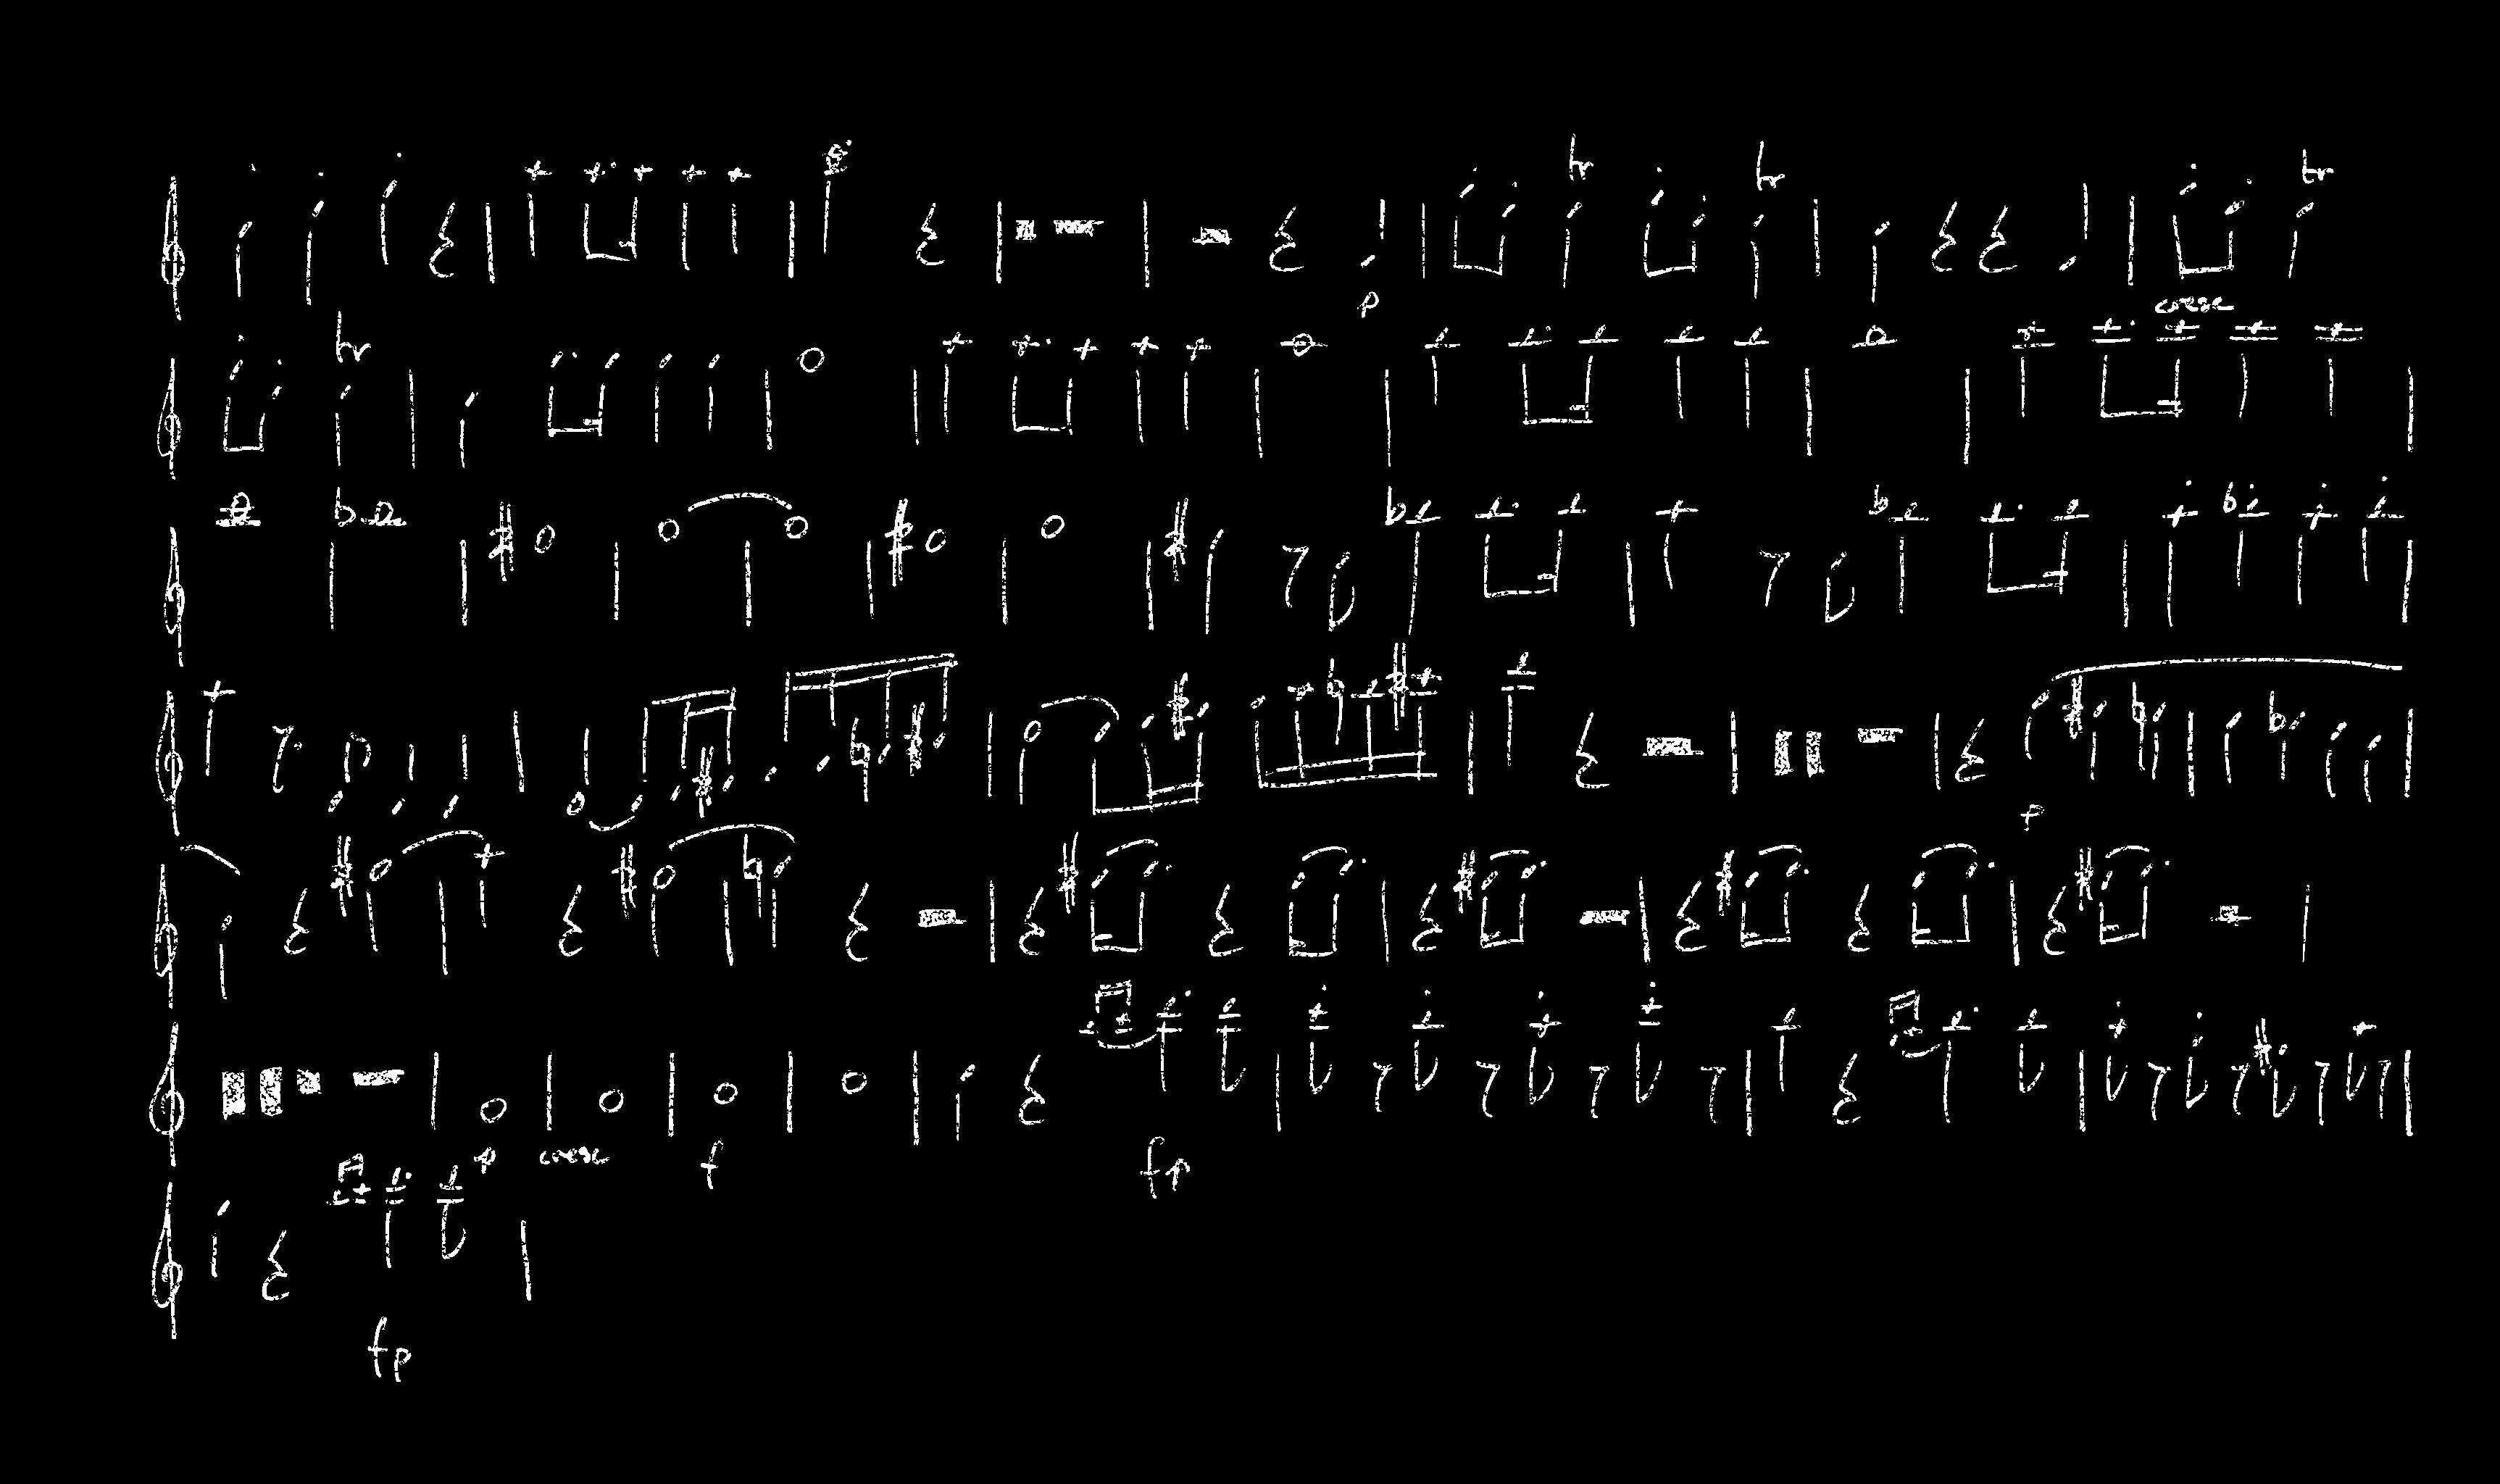 tr tr tr
p cresc
tr
p
p cresc f fp
fp